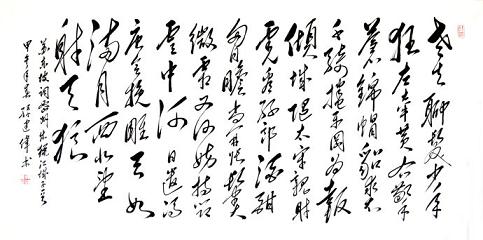 老夫聊發少年
狂左牽黃右擎
蒼錦帽貂裘
千騎捲平岡為報
傾城隨太守親射
虎看孫郎酒酣
胸膽尚開張鬢
微霜又何妨持節
雲中何日遣馮
唐會挽雕弓如
滿月西北望
射天狼
蘇東坡詞密州出獵江城子
甲午春建偉書